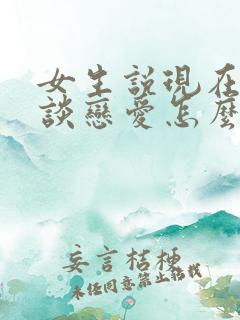 女生說現在
談戀愛怎麼
妄言桔梗
未任同意禁止轉載